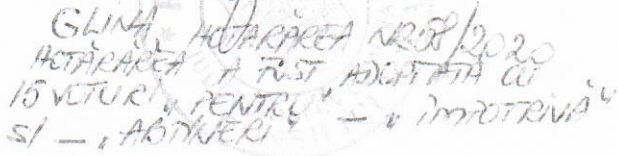 GLINA, HOTĂRÂREA NR58/2020
HOTĂRÂREA A FOST ADOPTATĂ CU
15 VOTURI „PENTRU” – „ÎMPOTRIVĂ”
SI – „ABȚINERI”